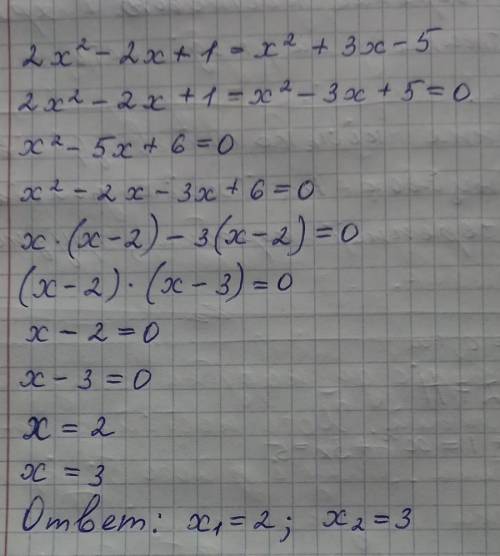 2x² - 2x + 1 = x² + 3x - 5
2x² - 2x + 1 = x² - 3x + 5 = 0
x² - 5x + 6 = 0
x² - 2x - 3x + 6 = 0
x · (x - 2) - 3(x - 2) = 0
(x - 2) · (x - 3) = 0
x - 2 = 0
x - 3 = 0
x = 2
x = 3
Ответ: x₁ = 2; x₂ = 3